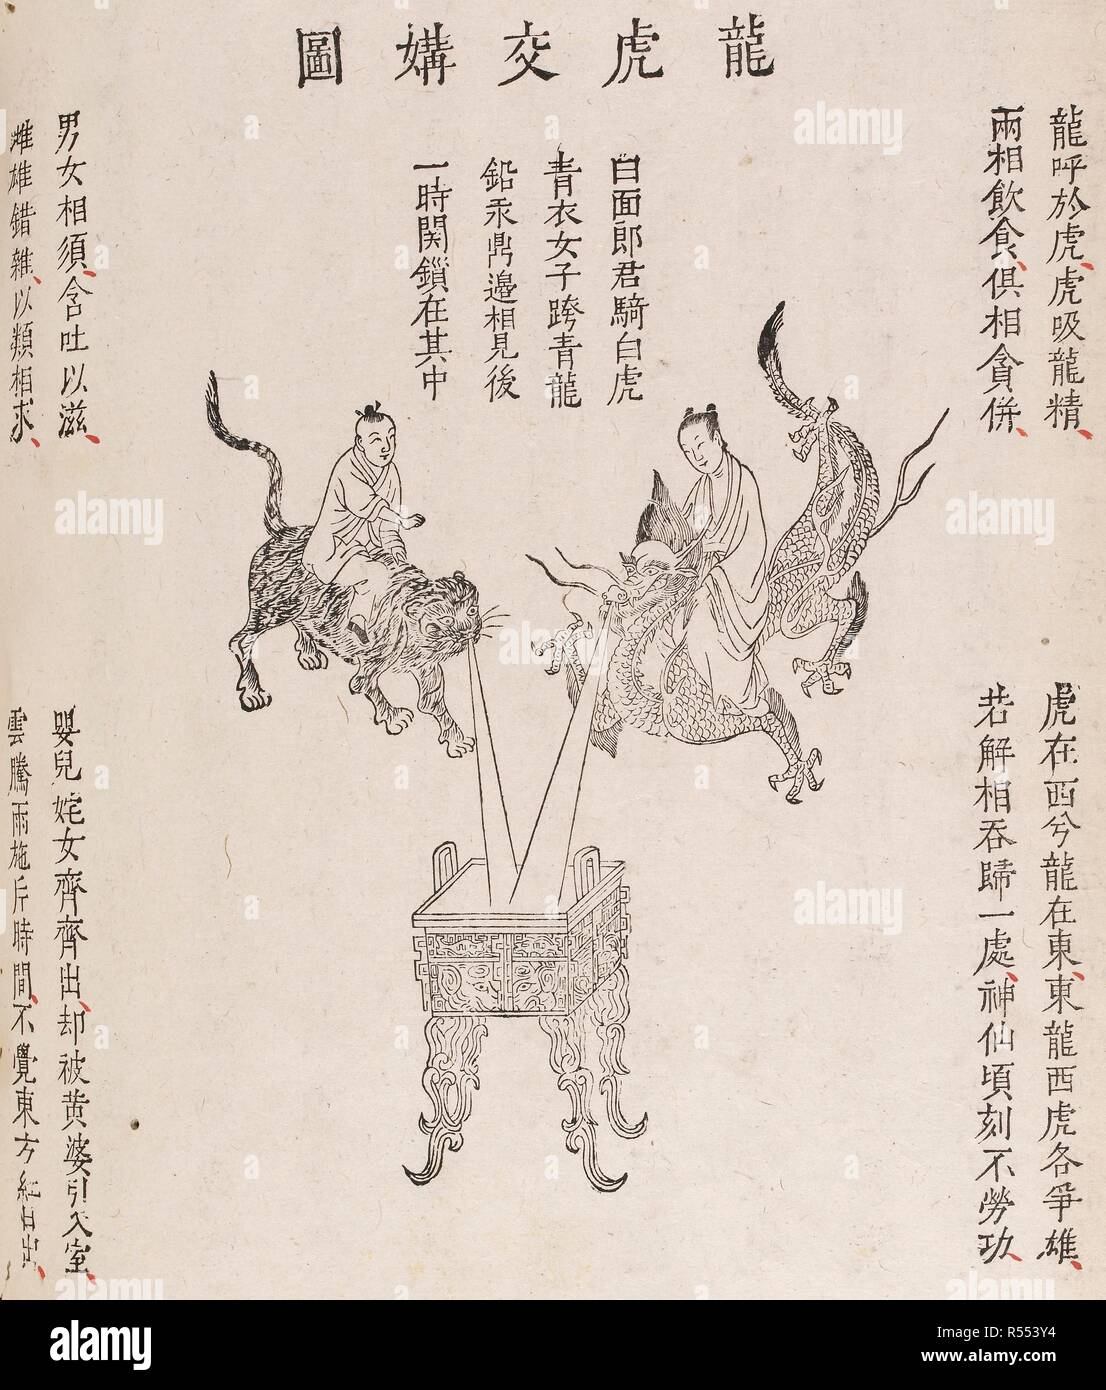 龍虎交媾圖
龍呼於虎、虎吸龍精、
兩相飲食、俱相貪併、
虎在西兮龍在東、東龍西虎各爭雄、
若解相吞歸一處、神仙頃刻不勞功、
白面郎君騎白虎
青衣女子跨青龍
鉛汞鼎邊相見後
一時関鎖在其中
男女相須、含吐以滋、
雌雄錯雜、以類相求、
嬰兒姹女齊齊出、却被黄婆引入室、
雲騰雨施片時間、不覺東方紅日出、
alamy
a
alamy stock photo
Image ID: R553Y4
www.alamy.com